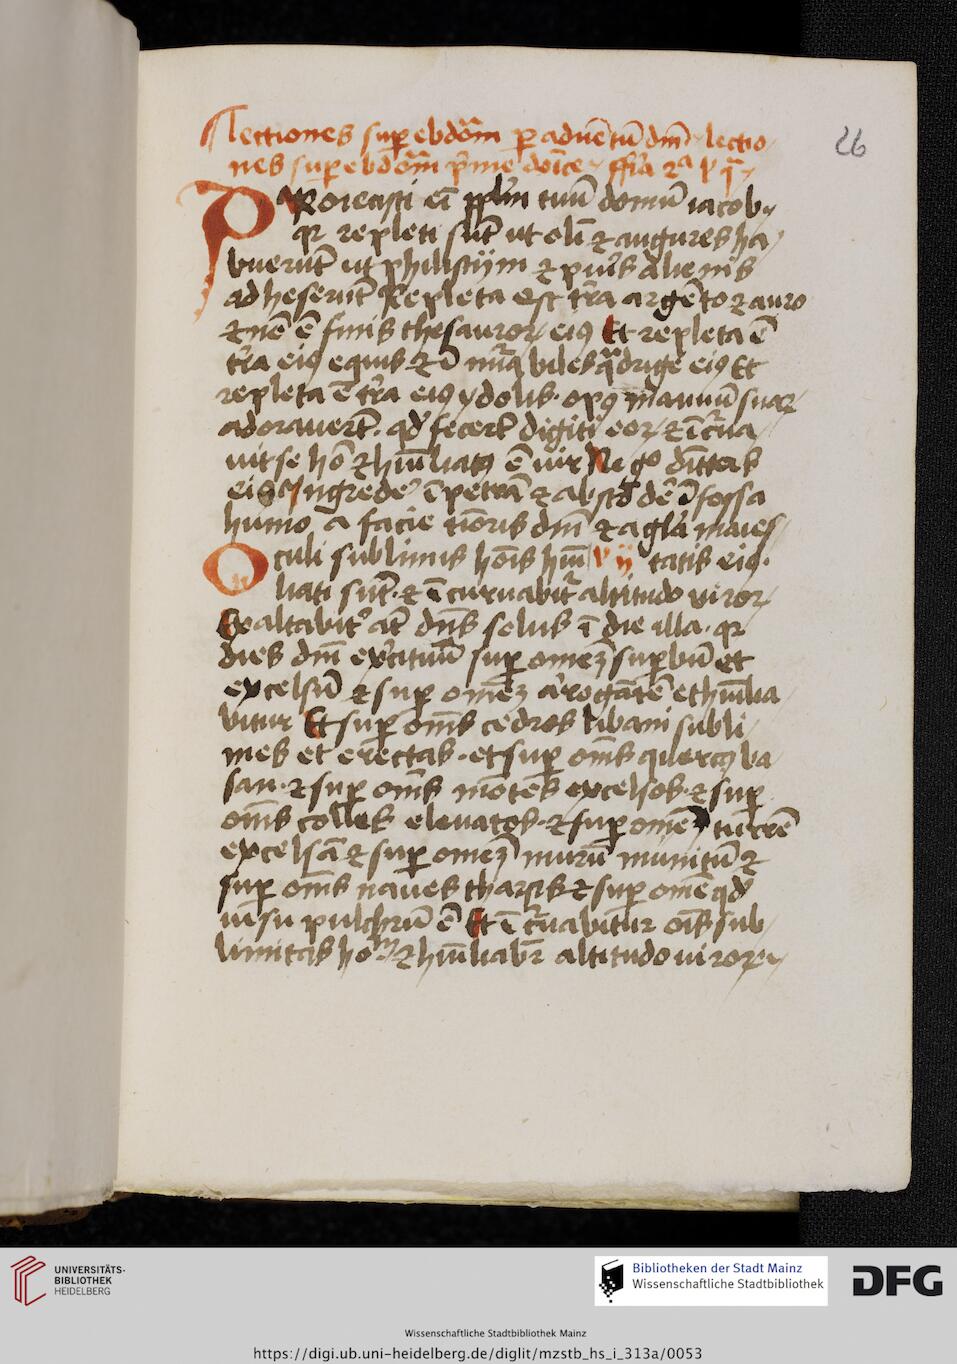 Lectiones sup ebdōm p aduētū dm̄ lectio
nes sup ebdōm p̄me doīce ffīa 2a
26
Proiecisti eī pplm̄ tuū domū iacob
qr repleti sūt ut olī ⁊ augures ha
buerūt ut philistijm ⁊ pueris alienis
adheserūt Repleta est tr̄a argēto ⁊ auro
⁊ nō ē finis thesauror eiꝯ Et repleta ē
tr̄a eiꝯ equis ⁊ īnūabiles qdrige eiꝯ Et
repleta ē tr̄a eiꝯ ydolis · opꝯ manuū suar
adorauerūt · qd fecerūt digiti eor ⁊ īcurua
uit se hō ⁊ hūiliatꝯ ē uir Ne go dīttas
eis Ingredere ī petrā ⁊ abscōdere ī fossa
humo a facie tīoris dm̄ ⁊ a gla maies
Oculi sublimis hōis hūi tatis eiꝯ ·
liati sūt · ⁊ īcuruabitr altitudo uiror
Exaltabitr āt dn̄s solus ī die illa · qr
dies dm̄ exercituū sup omēꝫ supbū et
excelsū ⁊ sup omēꝫ arrogātē et hūilia
bitur Et sup om̄s cedros libani subli
mes et erectas · et sup om̄s quercꝯ ba
san · ⁊ sup om̄s mōtes excelsos · ⁊ sup
om̄s colles eleuatos · ⁊ sup omēꝫ turrē
excelsā ⁊ sup omēꝫ murū munitū ⁊
sup om̄s naues tharsis ⁊ sup omē qd
uisu pulchrū ē Et īcuruabitur om̄s sub
limitas hom ⁊ hūiliabr altitudo uiror
UNIVERSITÄTS-
BIBLIOTHEK
HEIDELBERG
Bibliotheken der Stadt Mainz
Wissenschaftliche Stadtbibliothek
DFG
Wissenschaftliche Stadtbibliothek Mainz
https://digi.ub.uni-heidelberg.de/diglit/mzstb_hs_i_313a/0053